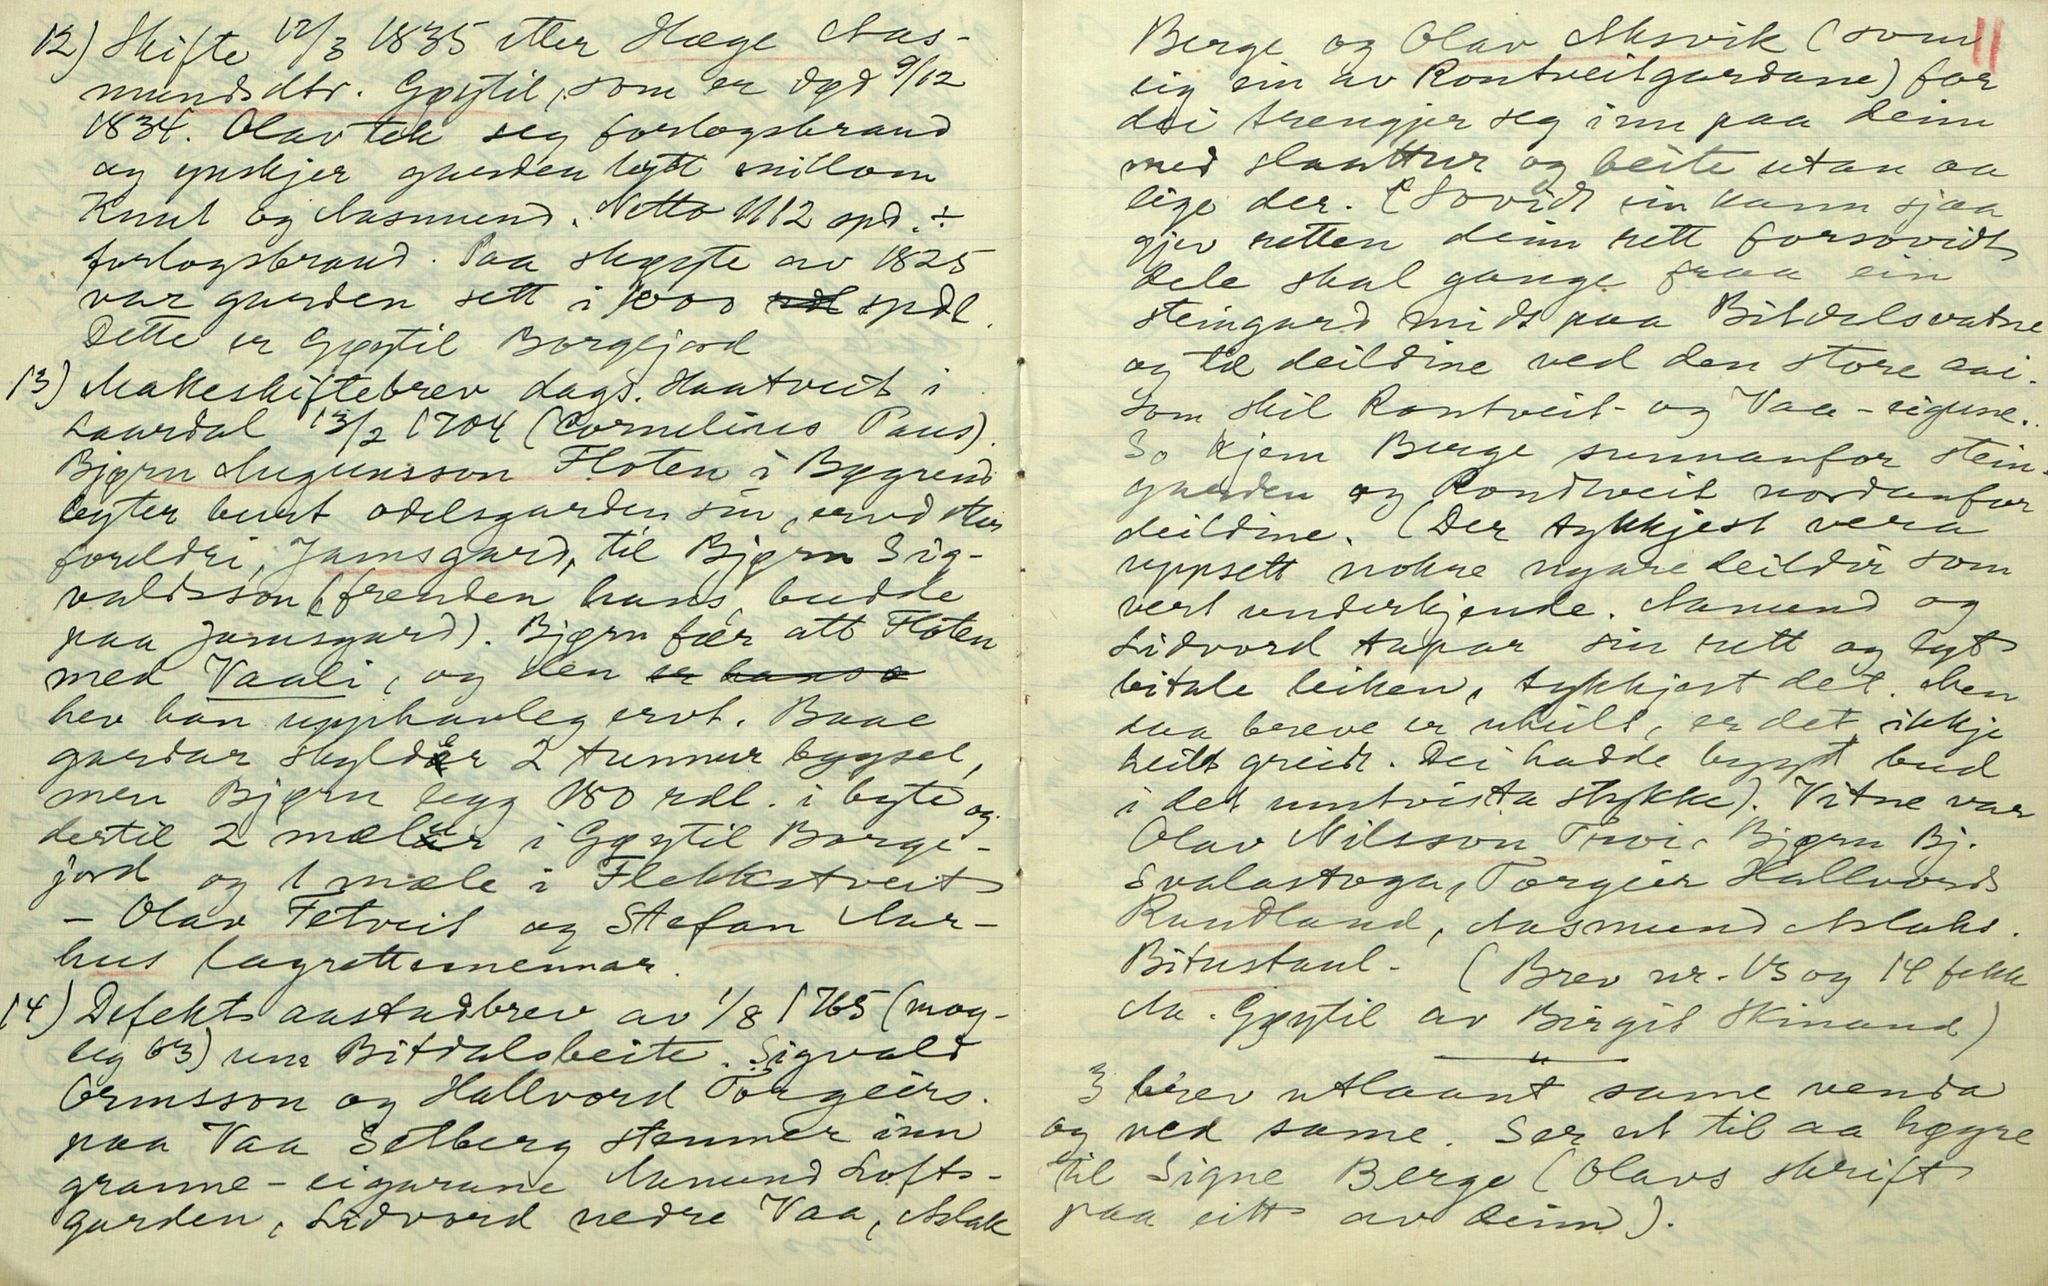 12) Skifte 12/3 1835 etter Hæge Aas-
mundsdtr. Gøytil, som er død 9/12
1834. Olav tek seg forlogsbraud
og ynskjer garden bytt millom
Knut og Aasmund. Netto 1112 spd. ÷
forlogsbraud. Paa skøyte av 1825
var garden sett i 1000 rdl spdl.
Dette er Gøytil Borgejord
13) Makeskiftebrev dags. Haatveit i
Laurdal 13/2 1704 (Cornelius Paus).
Bjørn Augunsson Floten i Bygland
byter burt odelsgarden sin, ervd etter
foreldri, Jamsgard, til Bjørn Sig-
valdsson (frenden hans, budde
paa Jamsgard). Bjørn fær att Floten
med Vaali, og den er hans o
hev han upphavleg ervt. Baae
gardar skylder 2 tunnur bygsel,
men Bjørn legg 180 rdl. i byte og
dertil 2 mælur i Gøytil Borge-
jord og 1 mæle i Flekkstveit
– Olav Fetveit og Stefan Aar-
hus lagrettemennar.
14) Defekt aastadbrev av 1/8 1765 (mog-
leg 63) um Bitdalsbeite. Sigvald
Ormsson og Hallvord Torgeirs.
paa Vaa Selberg stemner inn
granne-eigarane Aamund Lofts-
garden, Lidvord nedre Vaa, Aslak
11
Berge og Olav Aksvik (som
eig ein av Rontveitgardane) for
dei trengjer seg inn paa deim
med slaattur og beite utan aa
lige der. (Sovidt ein kann sjaa
gjev retten deim rett forsovidt
dele skal gange fraa ein
steingard midt paa Bitdalsvatne
og til deildine ved den store aai.
som skil Rontveit- og Vaa-eigune.
So kjem Berge sunnanfor stein-
garden og Rondtveit nordanfor
deildine. (Der tykkjest vera
uppsett nokre nyare deildir som
vert underkjende. Aamund og
Lidvord tapar sin rett og lyt
bitale leiken, tykkjest det. Men
daa breve er uheilt, er det ikkje
heilt greidt. Dei hadde bygt bud
i det umtvista stykke). Vitne var
Olav Nilsson Tvei, Bjørn Bj.
Svalastoga, Torgeir Hallvords
Rundland, Aasmund Aslaks.
Bitustaul. (Brev nr. 13 og 14 fekk
Aa. Gøytil av Birgit Skinand)
3 brev utlaant same venda
og ved same. Ser ut til aa høyre
til Signe Berge (Olavs skrift
paa eitt av deim).